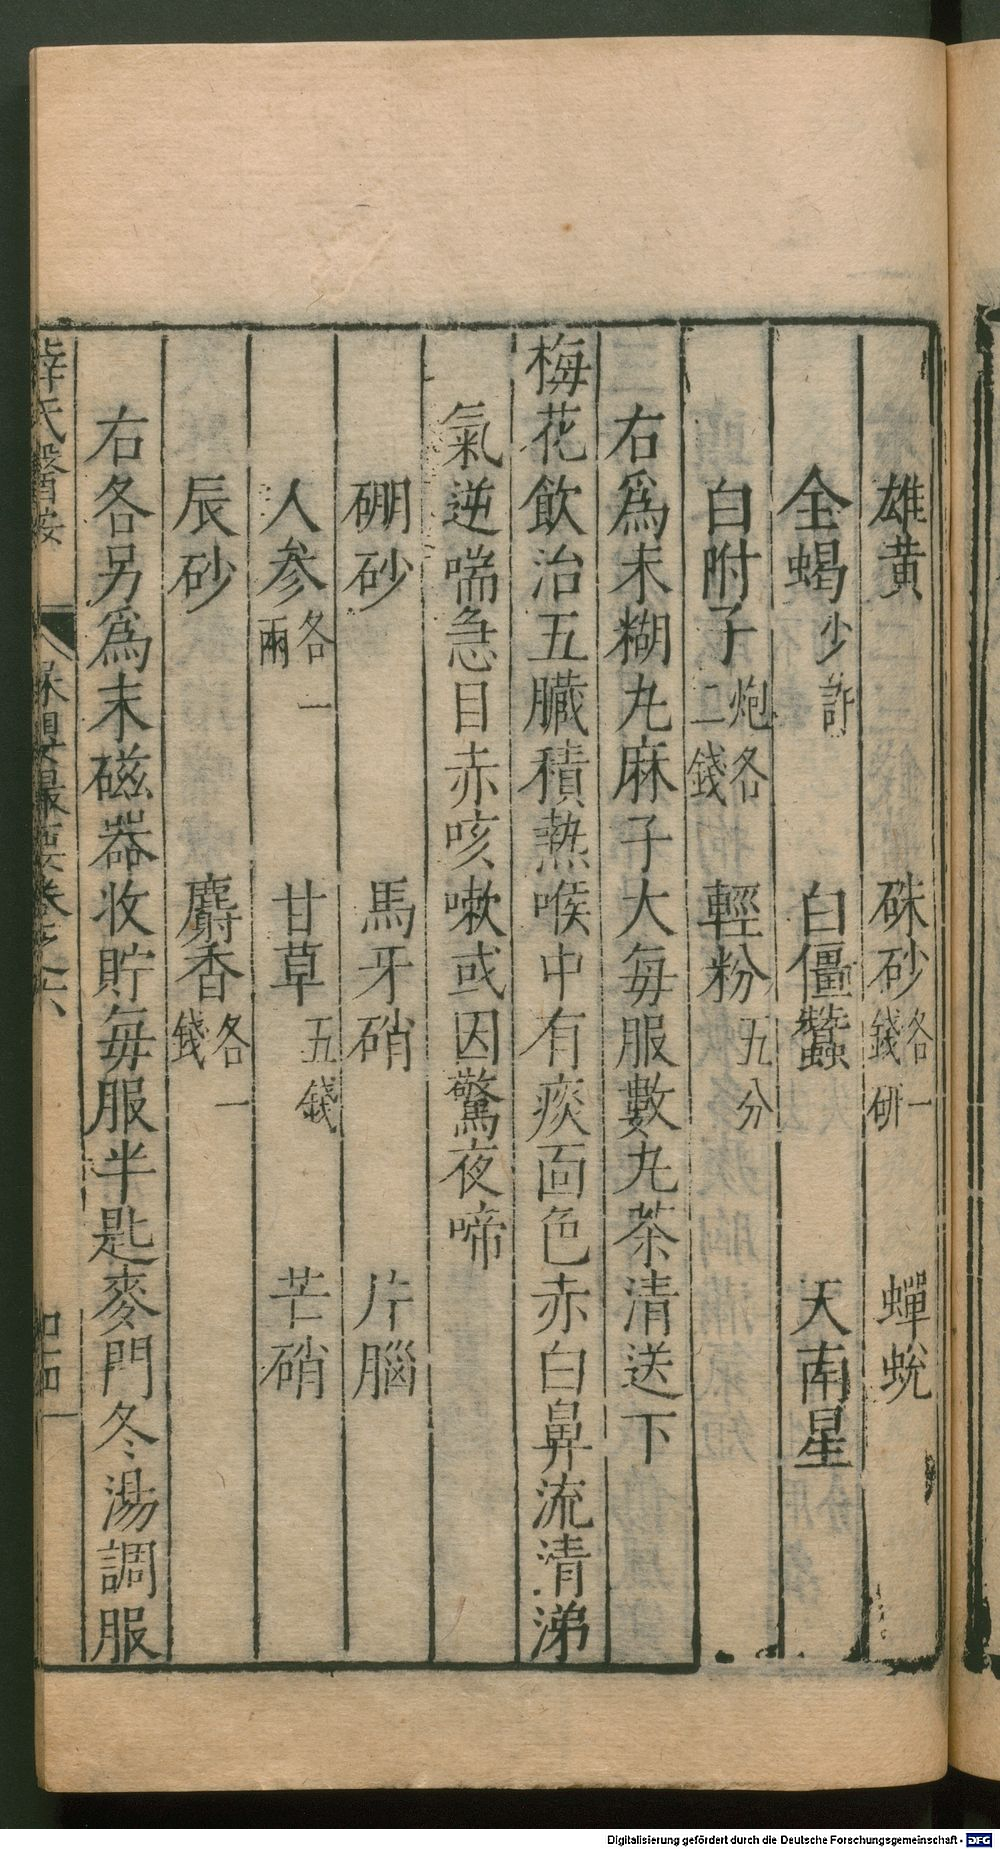 雄黄　硃砂各一錢研　蟬蛻
全蝎少許　白僵蠶　天南星
白附子炮各二錢　輕粉五分
右爲末糊丸麻子大每服數丸茶清送下
梅花飲治五臟積熱喉中有痰面色赤白鼻流清涕
氣逆喘急目赤咳嗽或因驚夜啼
硼砂　馬牙硝　片腦
人參各一兩　甘草五錢　芒硝
辰砂　麝香各一錢
右各另爲末磁器收貯每服半匙麥門冬湯調服
薛氏醫按　保嬰撮要卷之六
Digitalisierung gefördert durch die Deutsche Forschungsgemeinschaft - DFG